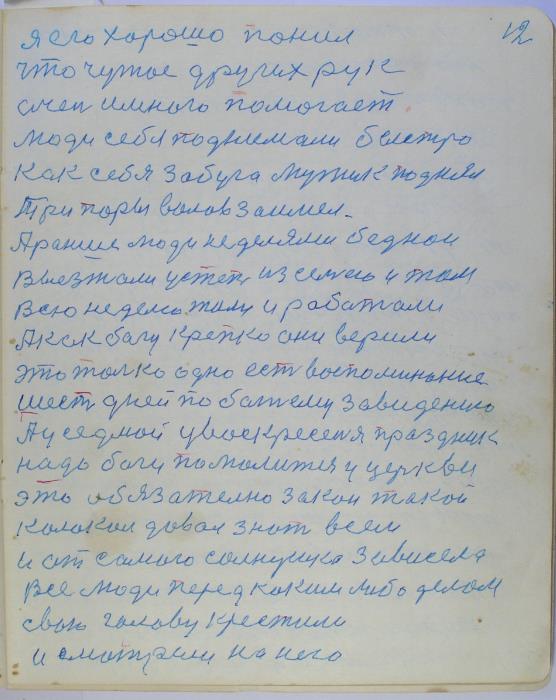 12
я его хорошо понил
что чужое других рук
очен имного помогает
люди себя поднемали бестро
как себя забуга мужик поднял
Три поры волов заимел.
А ранше люди неделями бедной
Виезжали устеп из семею и там
всю неделю жили и работали
А как богу крепко они верили
это толко одно ест воспоминание
шест дней по божему завидению
А у седмой у воскресеня праздник
надо богу помолится у церкви
это обязателно закон такой
колокол довал знат всем
и от самого солнушка зависела
все люди перед каким либо делом
свою голову крестили
и смотрели на него